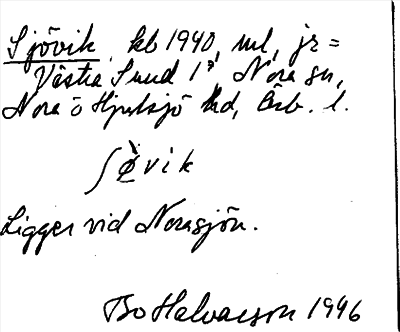 Sjövik, kb 1940, ml, jr =
Västra Sund 1³, Nora sn,
Nora o Hjulsjö hd, Örb. l.
ʃø̀vik
Ligger vid Norasjön.
Bo Halvarson 1996